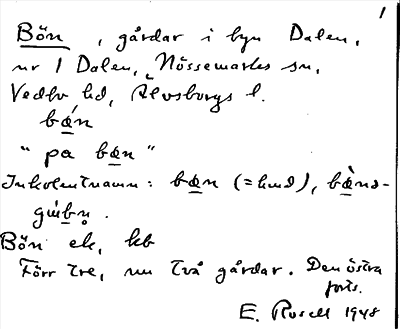 1
Bön, gårdar i byn Dalen,
nr 1 Dalen, Nössemarks sn,
Vedbo hd, Älvsborgs l.
bæ̀n
"pa bæn"
Inkolentnamn: bæn (= hmd), bæ̀ns-
gúbṇ.
Bön ek, kb
Förr tre, nu två gårdar. Den östra
forts.
E. Rosell 1948